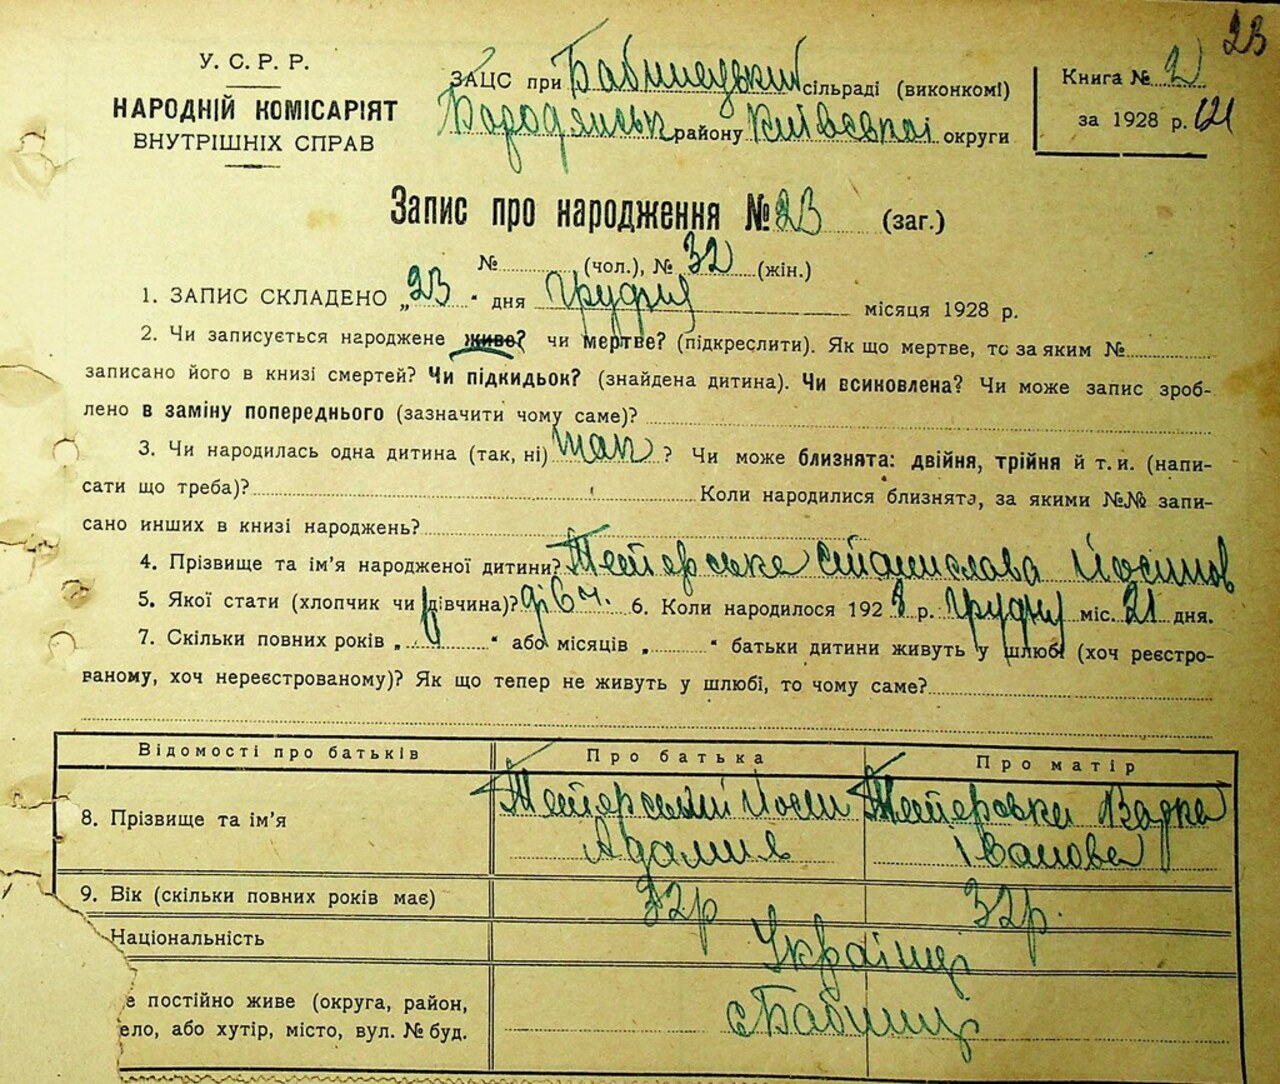 23
У. С. Р. Р.
НАРОДНІЙ КОМІСАРІЯТ
ВНУТРІШНІХ СПРАВ
ЗАЦС при Бабинецький сільраді (виконкомі)
Бородянськ району Київської округи
Книга № 2
за 1928 р. 121
Запис про народження № 23 (заг.)
№ (чол.), № 32 (жін.)
1. ЗАПИС СКЛАДЕНО „23“ дня Грудня місяця 1928 р.
2. Чи записується народжене живе? чи мертве? (підкреслити). Як що мертве, то за яким №
записано його в книзі смертей? Чи підкидьок? (знайдена дитина). Чи всиновлена? Чи може запис зроб-
лено в заміну попереднього (зазначити чому саме)?
3. Чи народилась одна дитина (так, ні) так ? Чи може близнята: двійня, трійня й т. и. (напи-
сати що треба)? Коли народилися близнята, за якими №№ запи-
сано инших в книзі народжень?
4. Прізвище та ім'я народженої дитини? Тетерська Станислава Йосипов
5. Якої стати (хлопчик чи дівчина)? дівч. 6. Коли народилося 1928 р. Грудня міс. 21 дня.
7. Скільки повних років „ “ або місяців „ “ батьки дитини живуть у шлюбі (хоч реєстро-
ваному, хоч нереєстрованому)? Як що тепер не живуть у шлюбі, то чому саме?
Відомості про батьків Про батька Про матір
8. Прізвище та ім'я Тетерський Йосип Тетерська
Адамів Іванова
9. Вік (скільки повних років має) 32р 32р.
Національність Українці
е постійно живе (округа, район,
ело, або хутір, місто, вул. № буд. с Бабинці